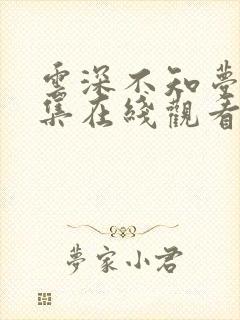 雲深不知夢
集在綫觀看
夢家小君